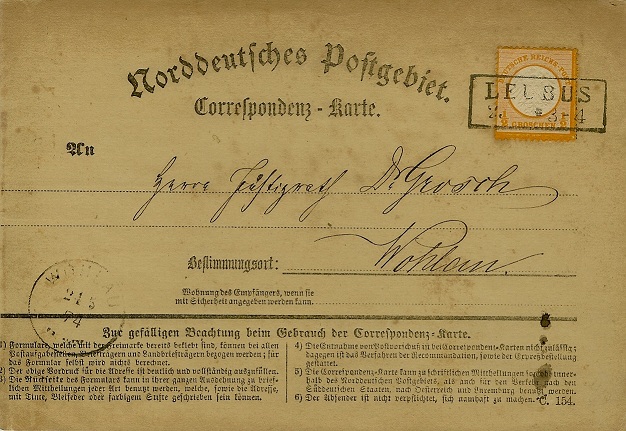 Norddeutsches Postgebiet.
Correspondenz-Karte.
LEUBUS
3-4
GROSCHEN
An
Herrn Justizrath Dr Grosch
Wohlau.
Bestimmungsort:
Wohnung des Empfängers, wenn sie
mit Sicherheit angegeben werden kann.
21 5
74
Zur gefälligen Beachtung beim Gebrauch der Correspondenz-Karte.
1) Formulare, welche mit der Freimarke bereits beklebt sind, können bei allen
Postaufgabestellen, Briefträgern und Landbriefträgern bezogen werden; für
das Formular selbst wird nichts berechnet.
2) Der obige Vordruck für die Adresse ist deutlich und vollständig auszufüllen.
3) Die Rückseite des Formulars kann in ihrer ganzen Ausdehnung zu brief-
lichen Mittheilungen jeder Art benutzt werden, welche, sowie die Adresse,
mit Tinte, Bleifeder oder farbigem Stifte geschrieben sein können.
4) Die Entnahme von Postvorschuß ist bei Correspondenz-Karten nicht zulässig;
dagegen ist das Verfahren der Recommandation, sowie der Expreßbestellung
gestattet.
5) Die Correspondenz-Karte kann zu schriftlichen Mittheilungen sowohl inner-
halb des Norddeutschen Postgebiets, als auch für den Verkehr nach den
Süddeutschen Staaten, nach Oesterreich und Luxemburg benutzt werden.
6) Der Absender ist nicht verpflichtet, sich namhaft zu machen.
C. 154.